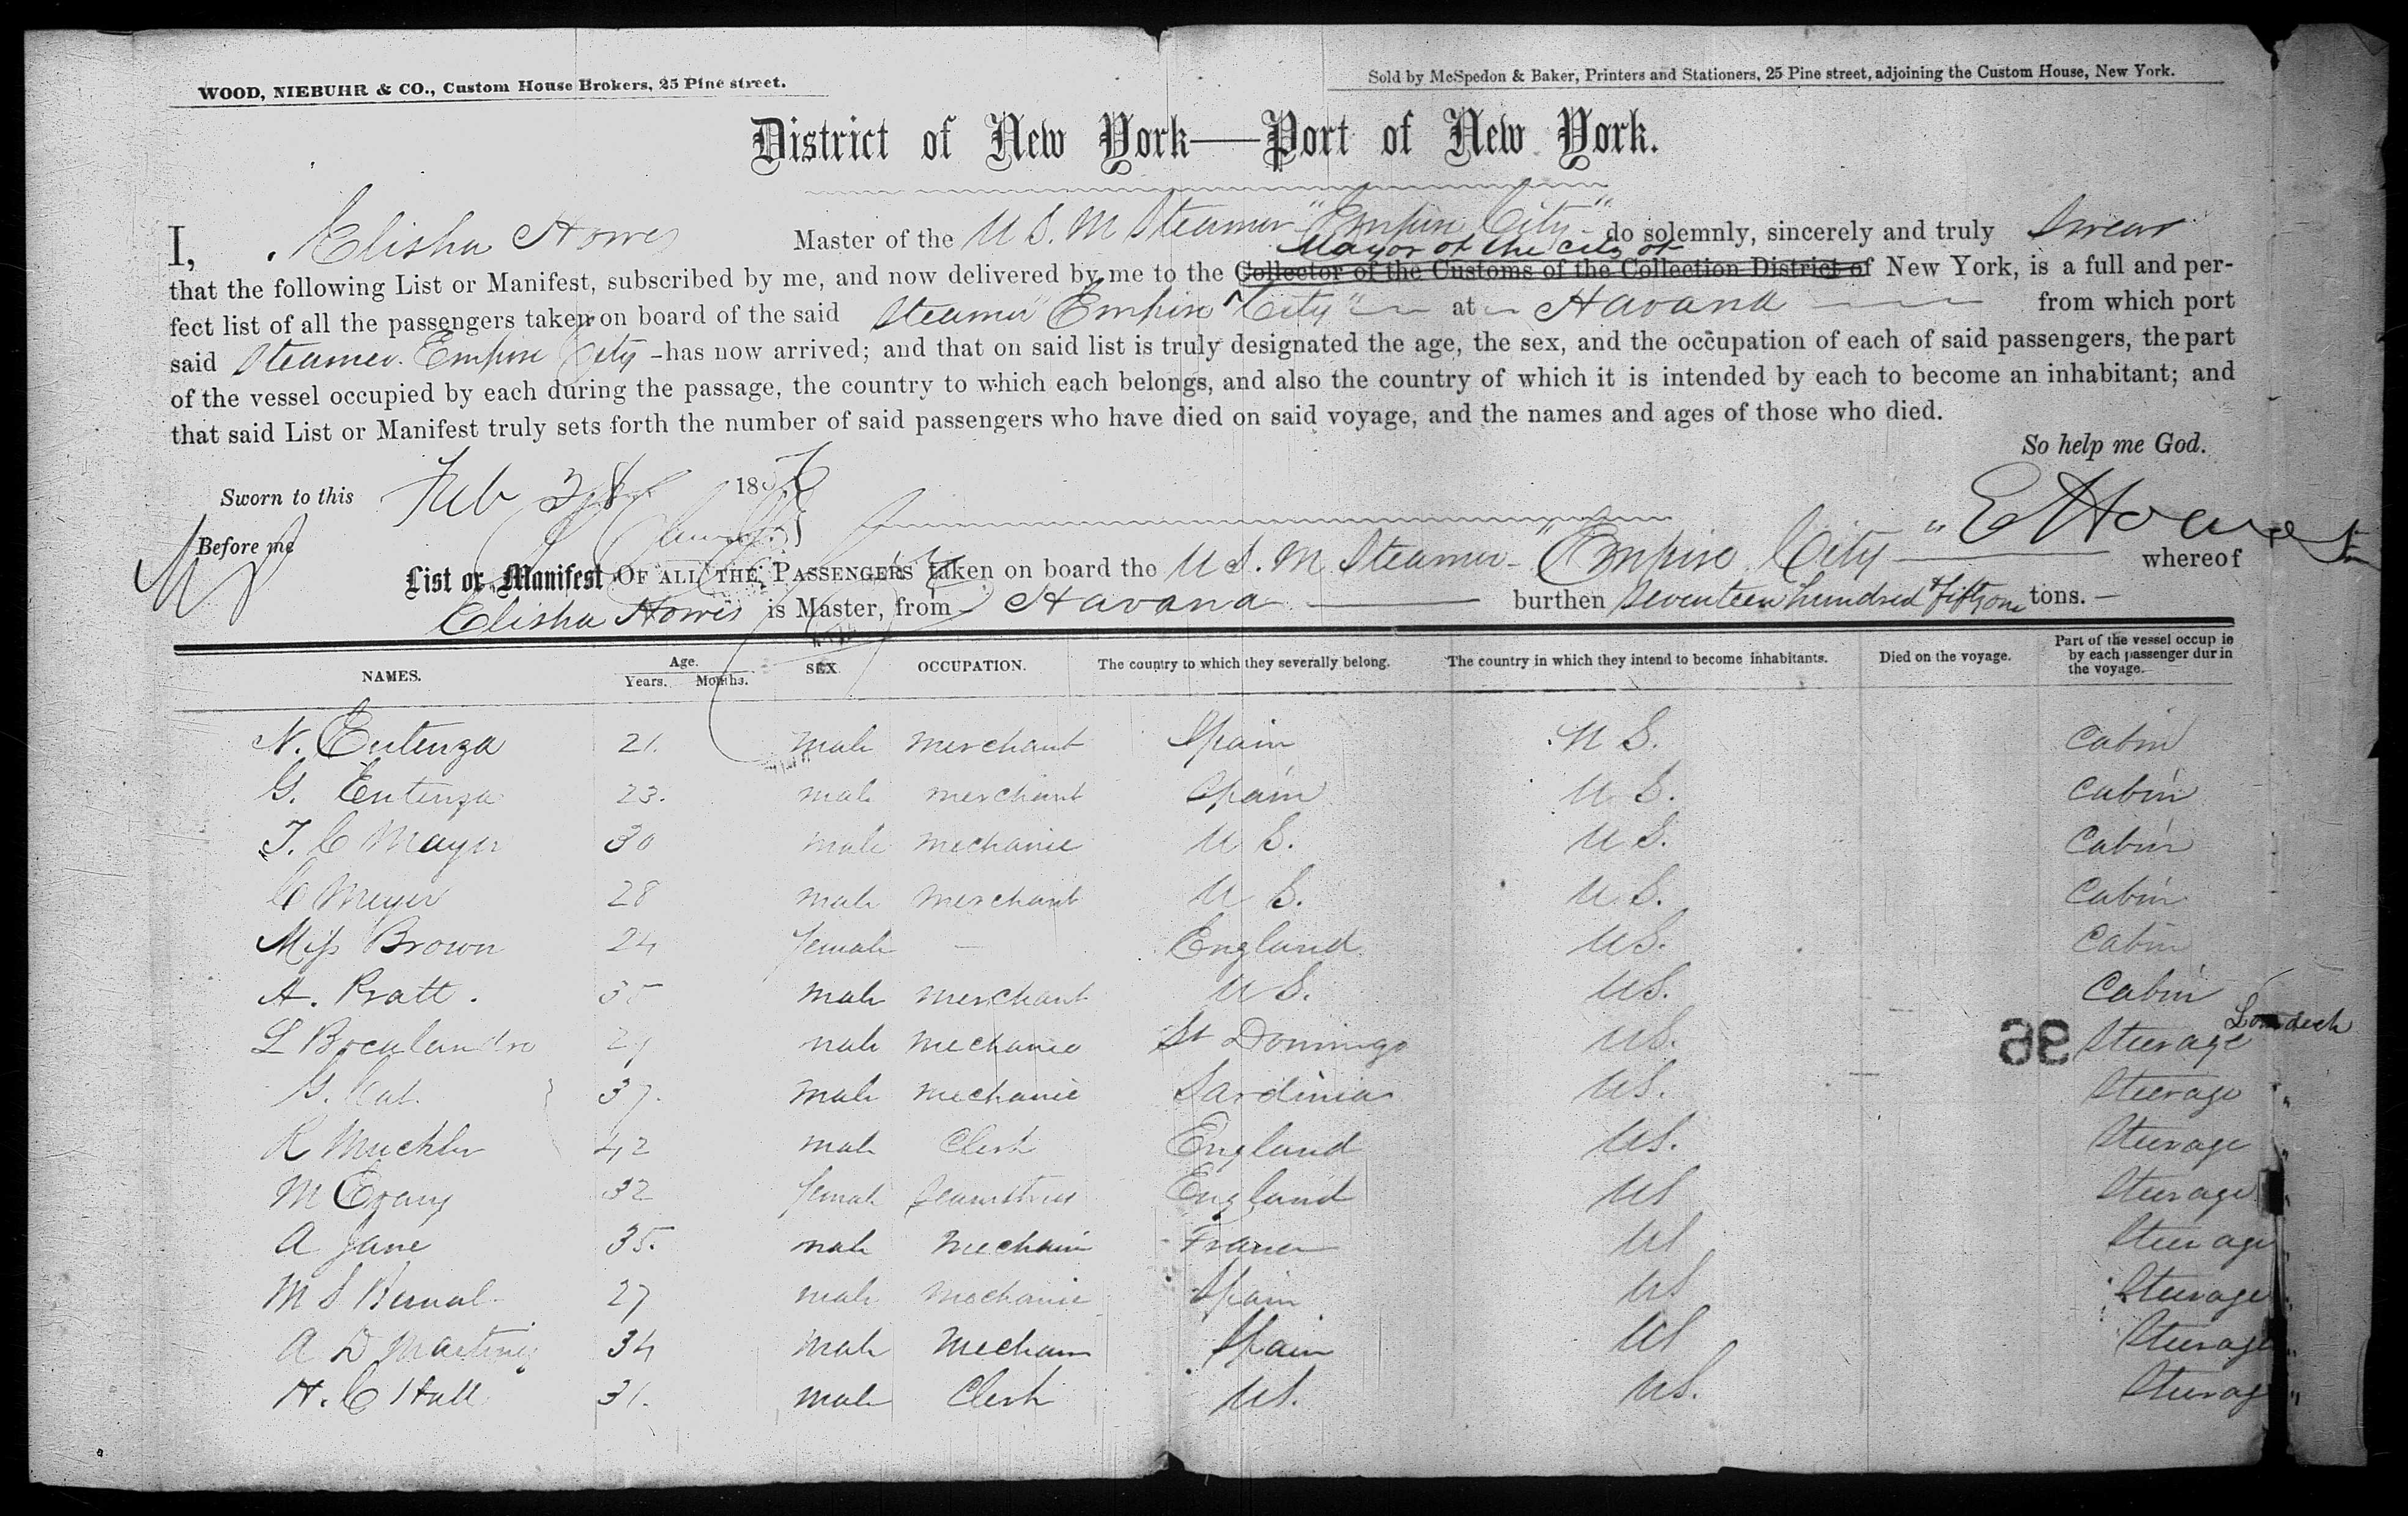 WOOD, NIEBUHR & CO., Custom House Brokers, 25 Pine street.
Sold by McSpedon & Baker, Printers and Stationers, 25 Pine street, adjoining the Custom House, New York.
District of New York—Port of New York.
I, Elisha Howes Master of the U S. M Steamer "Empire City" do solemnly, sincerely and truly Swear
Mayor of the city of
that the following List or Manifest, subscribed by me, and now delivered by me to the Collector of the Customs of the Collection District of New York, is a full and per-
fect list of all the passengers taken on board of the said Steamer "Empire City" at Havana from which port
said Steamer Empire City has now arrived; and that on said list is truly designated the age, the sex, and the occupation of each of said passengers, the part
of the vessel occupied by each during the passage, the country to which each belongs, and also the country of which it is intended by each to become an inhabitant; and
that said List or Manifest truly sets forth the number of said passengers who have died on said voyage, and the names and ages of those who died.
So help me God.
Sworn to this Feb 28 185
Before me
E Howes
List or Manifest OF ALL THE PASSENGERS taken on board the U S. M Steamer "Empire City" whereof
Elisha Howes is Master, from Havana burthen Seventeen hundred & fifty one tons.
NAMES. Age. Years. Months. SEX OCCUPATION. The country to which they severally belong. The country in which they intend to become inhabitants. Died on the voyage. Part of the vessel occup ie by each passenger dur in the voyage.
N. Entenza 21. male merchant Spain U S. Cabin
G. Entenza 23. male merchant Spain U S. Cabin
J. C Mayer 30 male mechanic U S. U S. Cabin
C Meyer 28 male merchant U S. U S. Cabin
Miss Brown 24 female — England US. Cabin
A. Pratt. 35 male merchant U S. US. Cabin
Low deck
L 2 male mechanic St Domingo US. Steerage
G. 37. male mechanic Sardinia US. Steerage "
R Muchler 42 male Clerk England US. Steerage "
M Evans 32 female seamstress England US Steerage "
A Jane 35. male Mechanic France US Steerage "
M S Bernal 27 male Mechanic Spain US Steerage "
A D Martinez 34 male Mechanic Spain US Steerage "
H. C Hall 31. male Clerk US. US. Steerage "